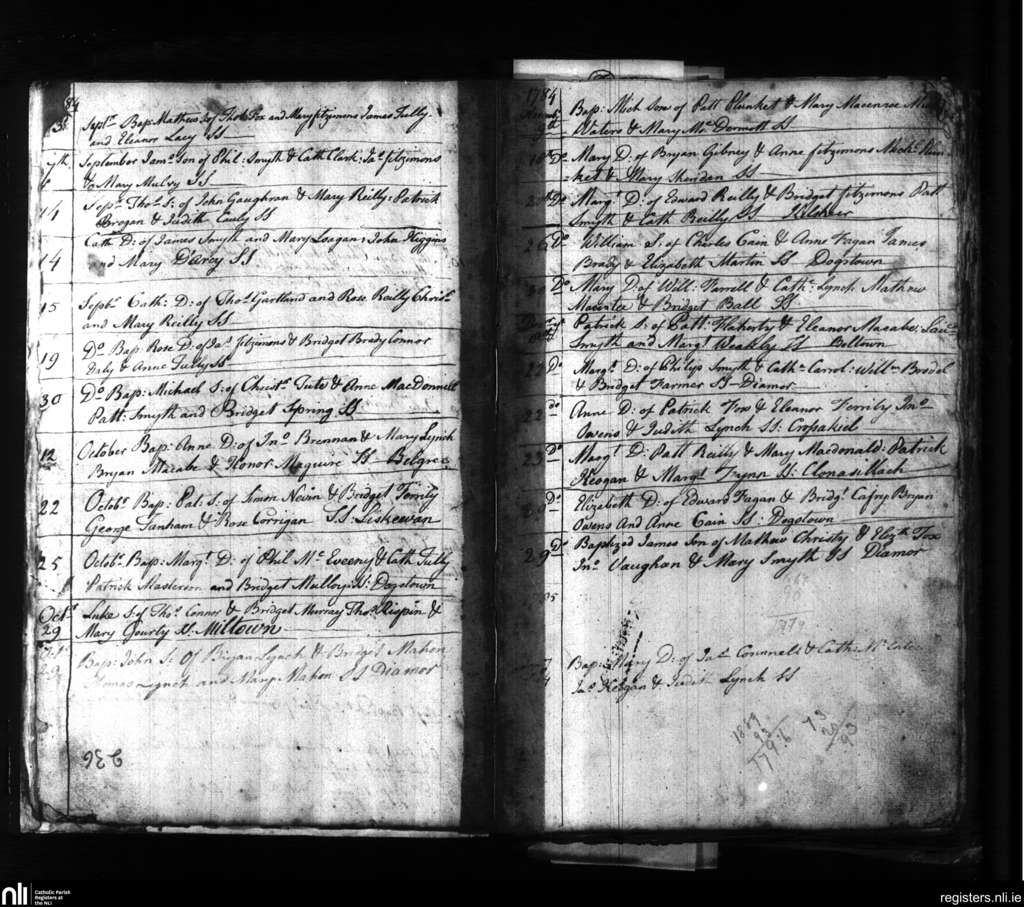 84
3d Septr. Bap: Mathew S of Thos. Fox and Mary fitzimons James Tully
and Eleanor Lacy SS
7th September James Son of Phil: Smyth & Cath Clark: Ja.s fitzimons
& Mary Mulvy SS
14 Sepr. Thos. S: of John Gaughran & Mary Reilly: Patrick
Brogan & Judith SS
Cath D: of James Smyth and Mary Loagan: John Higgins
14 and Mary D'arcy SS
15 Sepbr. Cath: D: of Thos. Gartland and Rose Reilly Christr.
and Mary Reilly SS
19 Do. Bap: Rose D: of Jas. fitzimons & Bridget Brady Connor
July & Anne Tully SS
30 Do Bap: Michael S: of Christr. Tute & Anne MacDonnell
Patt: Smyth and Bridget Spring SS
12 October Bap: Anne D: of Jno. Brennan & Mary Lynch
Bryan Macabe & Honor Maguire SS Belgree
22 Octobr. Bap: Pat: S: of Simon Nevin & Bridget Ferrily
George Tanham & Rose Corrigan SS Liskewan
25 Octobr. Bap: Margt. D: of Phil Mc. Eveney & Cath Tully
Patrick Masterson and Bridget Mulloy SS: Dogstown
Octr. Luke S: of Thos. Connor & Bridget Murray Thos. Rispin &
29 Mary Gourly SS. Miltown
Bap: John S: Of Bryan Lynch & Bridget Mahon
29 Thomas Lynch and Mary Mahon SS Diamor
936
1784
Bap: Mich Son of Patt Plunket & Mary Macenroe
9th Waters & Mary Mc. Dermott SS
Do Mary D: of Bryan Gibney & Anne fitzimons Michl. Plun-
-ket & Mary SS
Do Margt. D: of Edward Reilly & Bridget fitzimons Patt
Smyth & Cath Reilly SS
26 Do William S: of Charles Cain & Anne Fagan James
Brady & Elizabeth Martin SS Dogstown
Do Mary D: of Will: Farrell & Cath: Lynch Mathew
Macentee & Bridget Ball SS
Patrick S: of Patt: Flaherty & Eleanor Macabe: Laur.
Smyth and Margt. Weakley SS Boltown
22 Do Margt. D: of Philip Smyth & Cathn. Carrol: Willm. Brodel
& Bridget Farmer SS Diamor
22 do Anne D: of Patrick Fox & Eleanor Ferrily Jno.
Owens & Judith Lynch SS: Crosakeel
23 Do Margt. D: Patt Reily & Mary Macdonald: Patrick
Keogan & Margt. Fynn SS: Clonasillagh
Do Elizabeth D: of Edward Fagan & Bridgt. Cafry Bryan
Owens And Anne Cain SS: Dogstown
29 Do Baptized James Son of Mathew Christy & Elizth. Fox
Jno. Vaughan & Mary Smyth SS Diamor
Bap: Mary D: of Jas. Connel & Cath:
Jas. Keogan & Judith Lynch SS
nli
Catholic Parish
Registers at
the NLI
registers.nli.ie